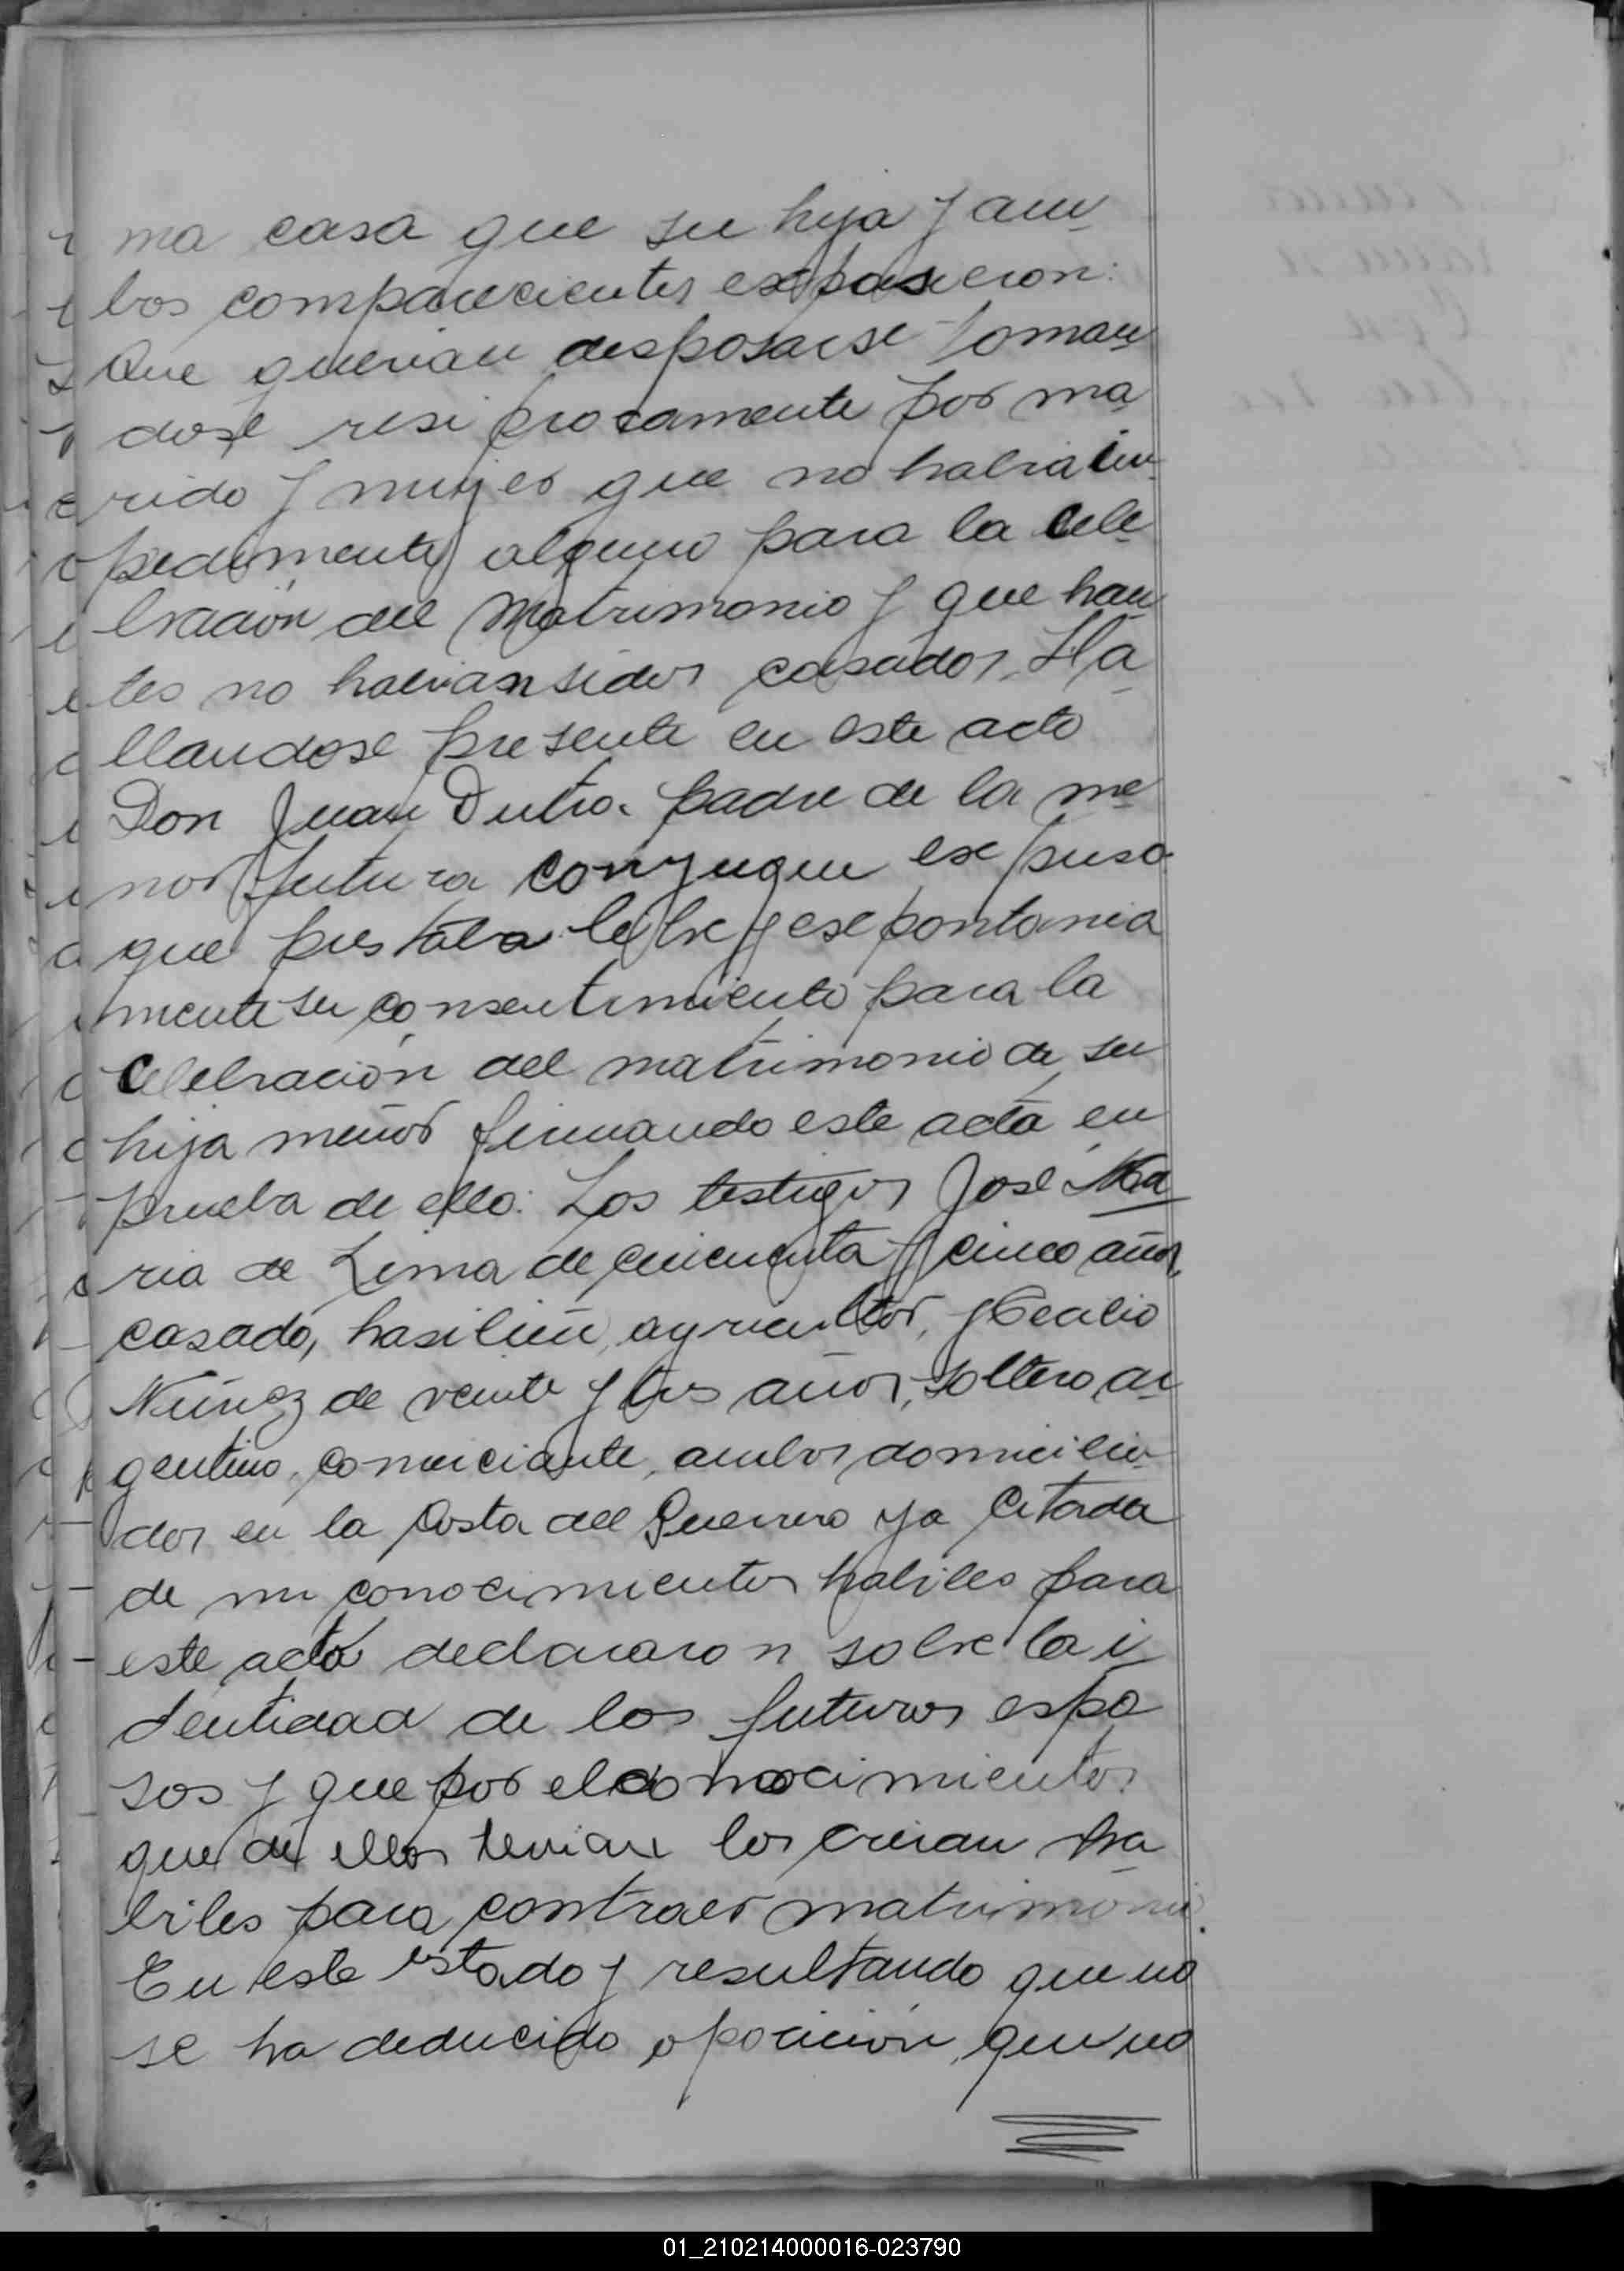 ma casa que su hija y am
bos comparecientes expusieron:
Que querian desposarse toman
dose resiprocamente por ma
rido y mujer que no habia im
pedimento alguno para la cele
bración del Matrimonio y que han
tes no habian sidos casados. Ha
llandose presente en este acto
Don Juan Dutra padre de la me
nor futura conyugue expuso
que prestaba libre y expontania
mente su consentimiento para la
celebración del matrimonio de su
hija menor firmando este acta en
prueba de ello: Los testigos José Ma
ria de Lima de cincuenta y cinco años,
casado, brasilero, agricultor, y Cecilio
Núñez de veinte y tres años, soltero ar
gentino, comerciante, ambos domicilia
dos en la Costa del Guerrero ya citada
de mi conocimientos habiles para
este acto declararon sobre la i
dentidad de los futuros espo
sos y que por el conocimientos
que de ellos tenian los creian ha
biles para contraer matrimonio.
En este estado y resultando que no
se ha deducido oposición, que no
01_210214000016-023790